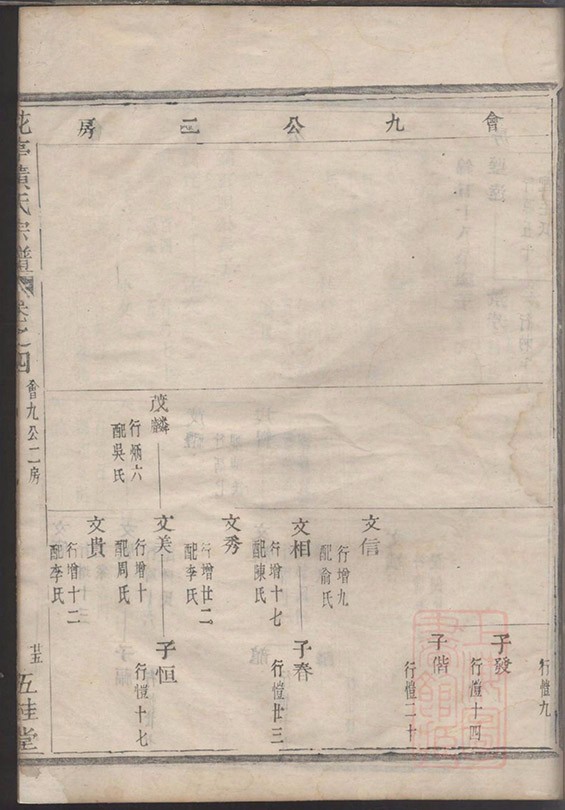 會九公二房
行愷九
子發
行愷十四
子偕
行愷二十
文信
行增九
配俞氏
文相
行增十七
配陳氏
子春
行愷廿三
文秀
行增廿二
配李氏
茂麟
行炳六
配吳氏
文美
行增十
配周氏
子恒
行愷十七
文貴
行增十二
配李氏
黃氏宗譜
卷之四
會九公二房
五桂堂